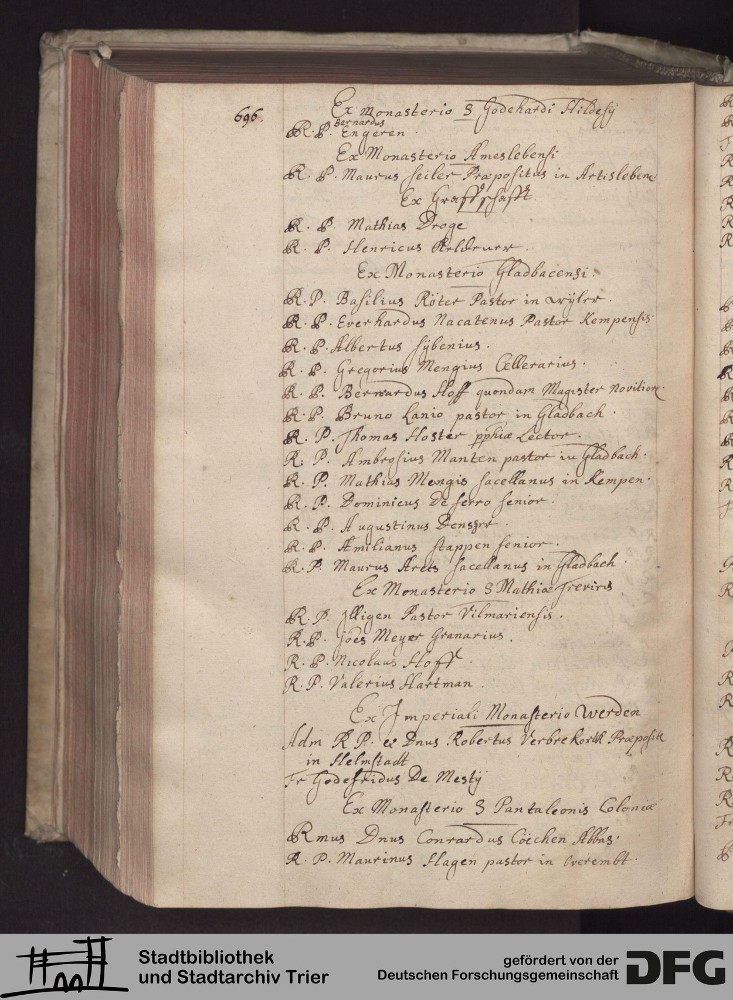 696.
Ex Monasterio S Godehardi Hildesij
Bernardus
R. P. Engeren.
Ex Monasterio Ameslebensi
R. P. Maurus Seiler Præpositus in Artisleben
Ex Graffschafft
R. P. Mathias Droge
R. P. Henricus
Ex Monasterio Gladbacensi.
R. P. Basilius Röter Pastor in Wÿler.
R. P. Everhardus Nacatenus Pastor Kempensis
R. P. Albertus Sÿbenius.
R. P. Gregorius Mengius Cellerarius.
R. P. Bernardus Hoff quondam Magister Novitior.
R. P. Bruno Lanio pastor in Gladbach.
R. P. Thomas Hoster pphiæ Lector.
R. P. Ambrosius Manten pastor in Gladbach.
R. P. Mathias Mengis sacellanus in Kempen.
R. P. Dominicus de ferro senior.
R. P. Augustinus
R. P. Æmilianus Stappen senior.
R. P. Maurus Arets sacellanus in Gladbach
Ex Monasterio S Mathiæ Treviris
R. P. Illigen Pastor Vilmariensis.
R. P. Joës Meyer Granarius.
R. P. Nicolaus Hoff
R. P. Valerius Hartman.
Ex Imperiali Monasterio Werden
Adm R P. et Dnus Robertus Verbrekorth Præposit
in Helmstadt
Fr Godefridus De Mestÿ
Ex Monasterio S Pantaleonis Coloniæ
Rmus Dnus Conrardus Cöechen Abbas.
R. P. Maurinus Hagen pastor in
Stadtbibliothek
und Stadtarchiv Trier
gefördert von der
Deutschen Forschungsgemeinschaft
DFG